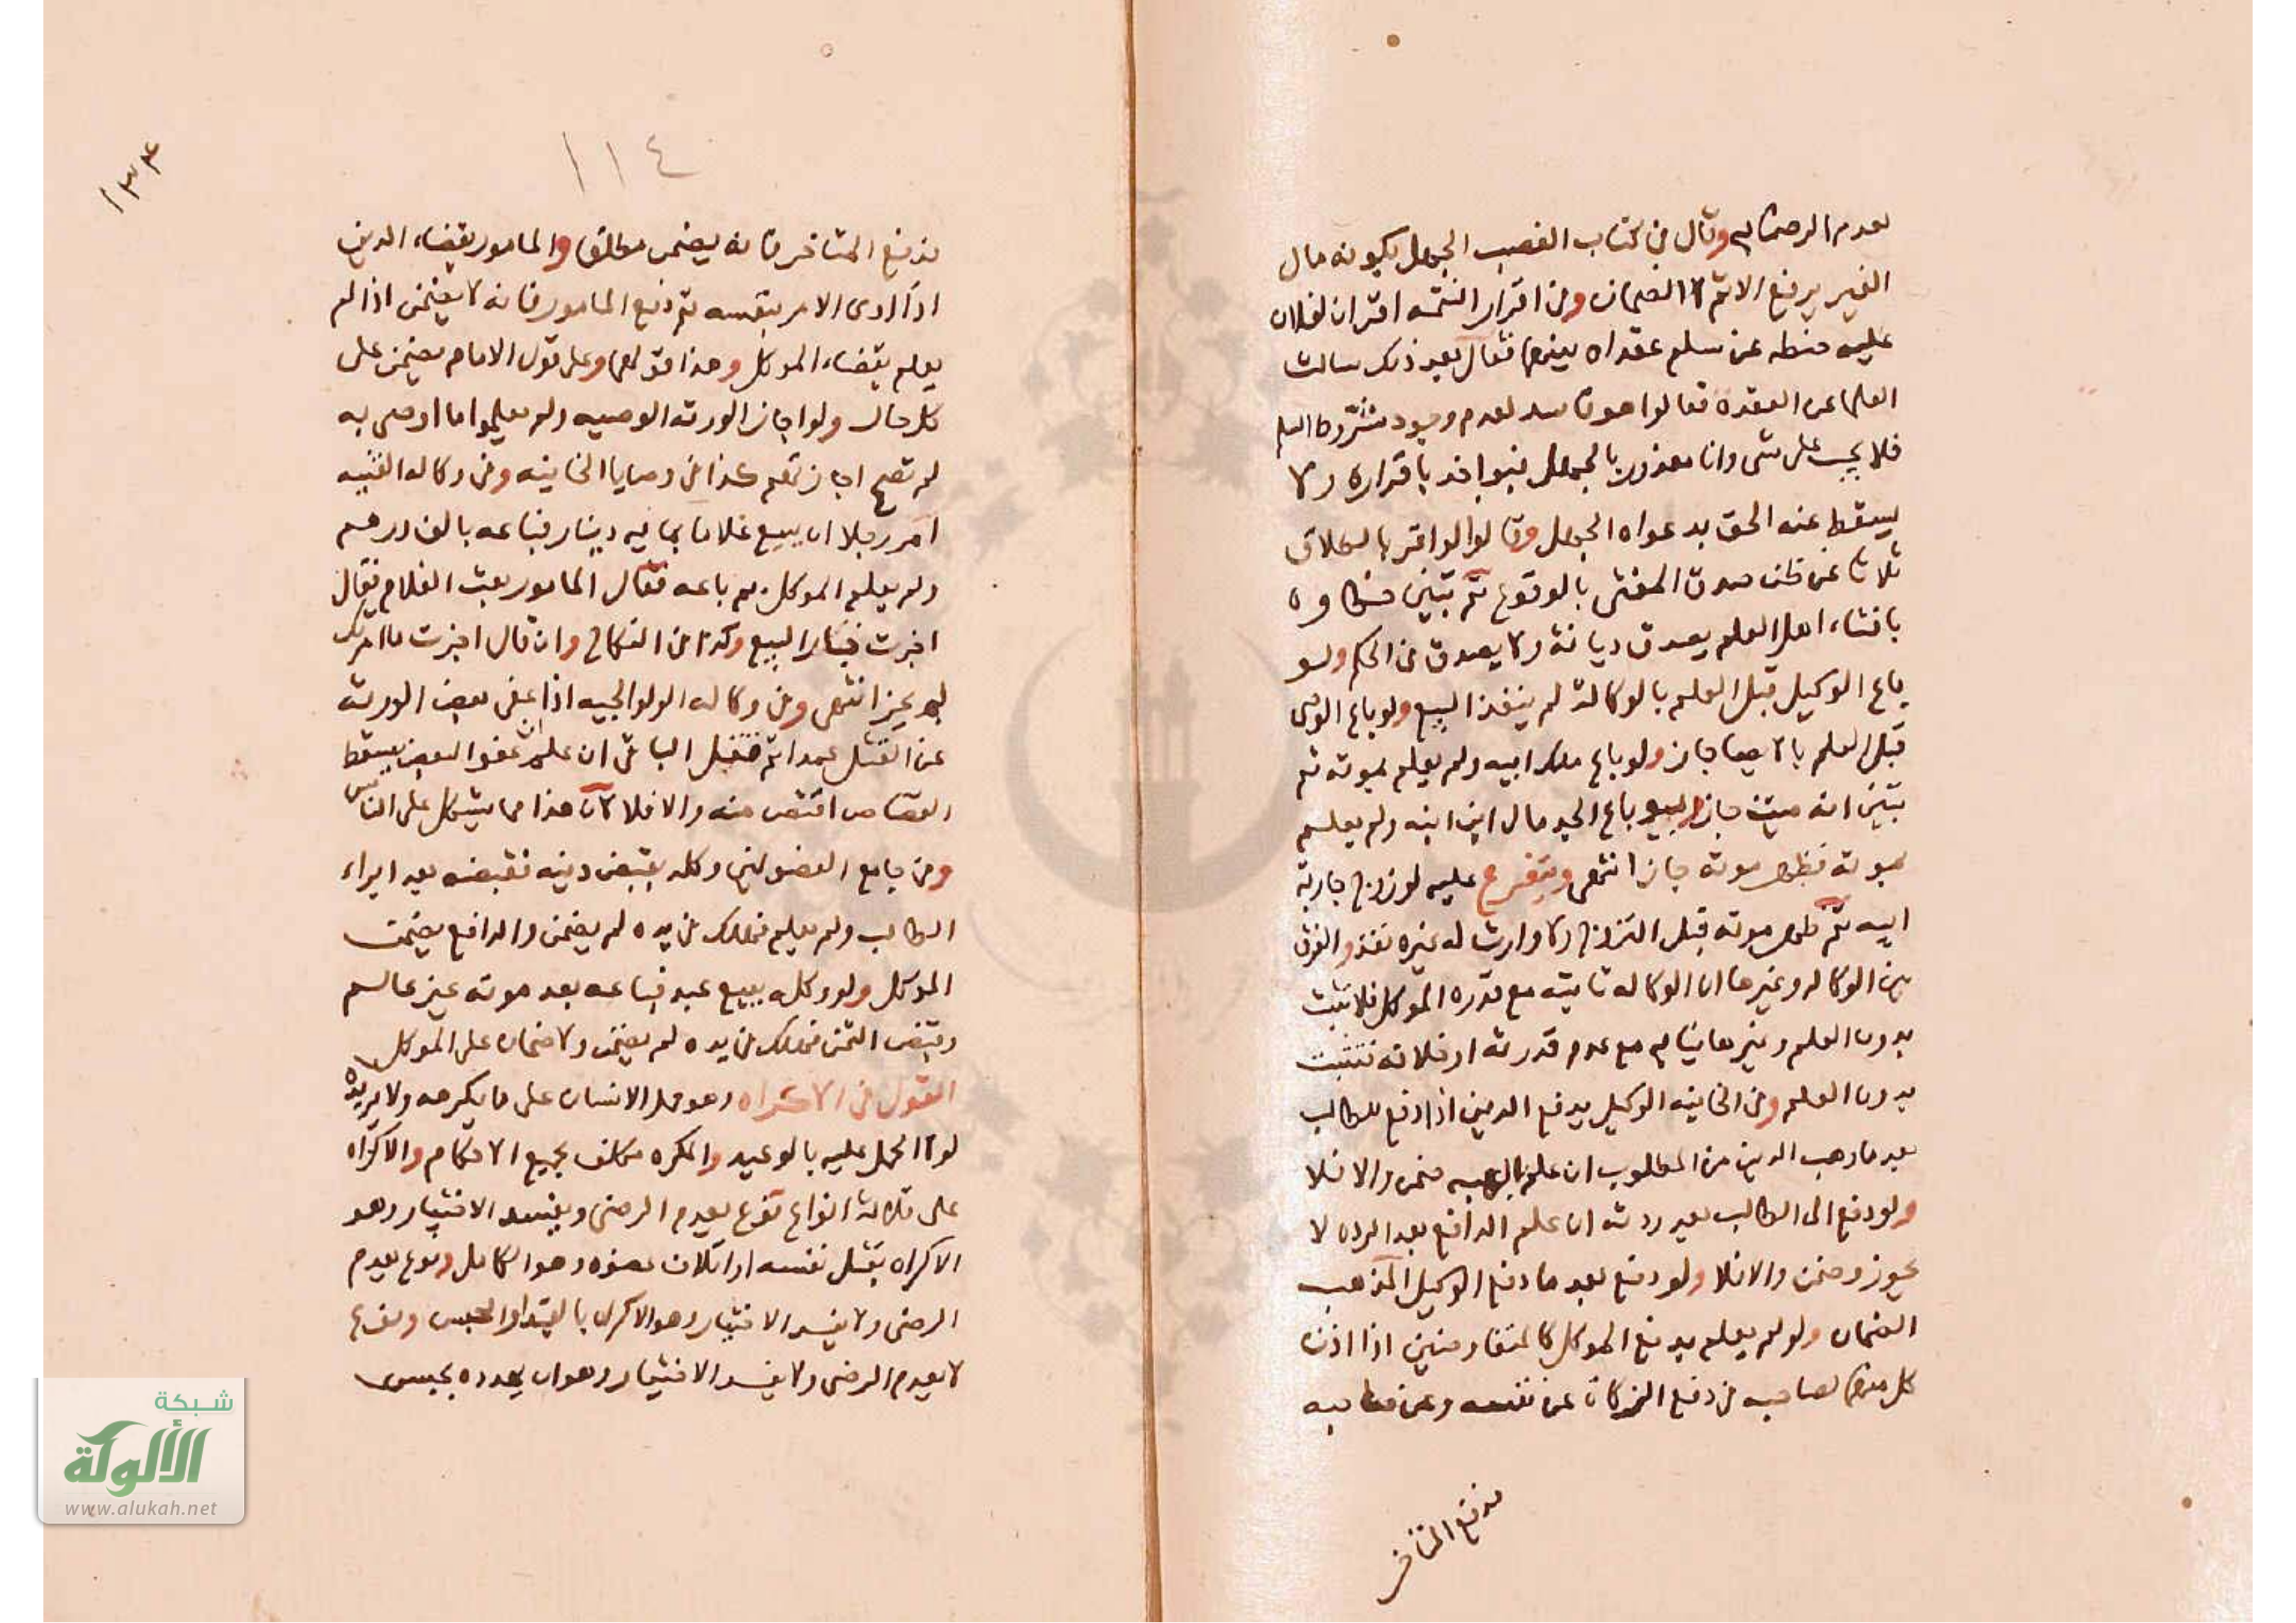 لعدم الرضا به وقال في كتاب الغصب الجهل بكونه مال
الغير يرفع الاثم لا الضمان وفي اقرار اليتيمه اقر ان لفلان
عليه حنطه عن سلم عقداه بينهما فقال بعد ذلك سالت
العلما عن العقده فقالوا هو فاسد لعدم وجود شروط السلم
فلا يجب على شى وانا معذور بالجهل فيواخذ باقراره ولا
يسقط عنه الحق بدعواه الجهل وقالوا لو اقر بالطلاق
ثلاثا عن ظن صدق المفتى بالوقوع ثم تبين خطاوه
بافتاء اهل العلم يصدق ديانة ولا يصدق في الحكم ولو
باع الوكيل قبل العلم بالوكالة لم ينفذ البيع ولو باع الوصى
قبل العلم بالايصا جاز ولو باع ملك ابيه ولم يعلم بموته ثم
تبين انه ميت جاز البيع باع الجد مال ابن ابنه ولم يعلم
بموته فظهر موته جاز انتهى ويتفرع عليه لو زوج جارية
ابيه ثم ظهر موته قبل التزوج ولا وارث له غيره نفذ والفرق
بين الوكاله وغيرها ان الوكاله ثابته مع قدرة الموكل فلا تثبت
بدون العلم وغيرها مع عدم قدرته او خلافه فتثبت
بدون العلم وفي الخانيه الوكيل بدفع الدين اذا دفع للطالب
بعد ما وهب الدين من المطلوب ان علم بالهبه ضمن والا فلا
ولو دفع الى الطالب بعد ردته ان علم الدافع بعد الرده لا
يجوز وضمن والا فلا ولو دفع بعد ما دفع الوكيل المذهب
الضمان ولو لم يعلم بدفع الموكل كالمتفاوضين اذا اذن
كل منهما لصاحبه في دفع الزكاة عن نفسه وعن صاحبه
فدفع المتاخر
١٣٤
١١٤
فدفع المتاخر فانه يضمن مطلقا والمامور بقضاء الدين
اذا ادى الامر بنفسه ثم دفع المامور فانه لا يضمن اذا لم
يعلم بقضاء الموكل وهذا قولهما وعلى قول الامام يضمن على
كل حال ولو اجاز الورثه الوصيه ولم يعلموا ما اوصى به
لم تصح اجازتهم كذا في وصايا الخانيه وفي وكاله القنيه
امر رجلا ان يبيع غلاما بمايه دينار فباعه بالف درهم
ولم يعلم الموكل بم باعه فقال المامور بعت الغلام فقال
اجزت جاز البيع وكذا في النكاح وان قال اجزت ما امرتك
لم يجز انتهى وفي وكاله الولوالجيه اذا عفى بعض الورثه
عن القتل عمدا ثم قتل الباقى ان علم ان عفو البعض يسقط
القصاص اقتص منه والا فلا لان هذا مما يشكل على الناس
وفي جامع الفصولين وكله بقبض دينه فقبضه بعد ابراء
الطالب ولم يعلم فهلك في يده لم يضمن والدافع يضمن
الموكل ولو وكله ببيع عبد فباعه بعد موته غير عالم
وقبض الثمن فهلك في يده لم يضمن ولا ضمان على الموكل
القول في الاكراه وهو حمل الانسان على ما يكرهه ولا يريده
لولا الحمل عليه بالوعيد والمكره مكلف بجميع الاحكام والاكراه
على ثلاثة انواع نوع يعدم الرضى ويفسد الاختيار وهو
الاكراه بقتل نفسه او اتلاف عضوه وهو الكامل ونوع يعدم
الرضى ولا يفسد الاختيار وهو الاكراه بالقيد او الحبس ونوع
لا يعدم الرضى ولا يفسد الاختيار وهو ان يهدده بحبس
شبكة
الألوكة
www.alukah.net